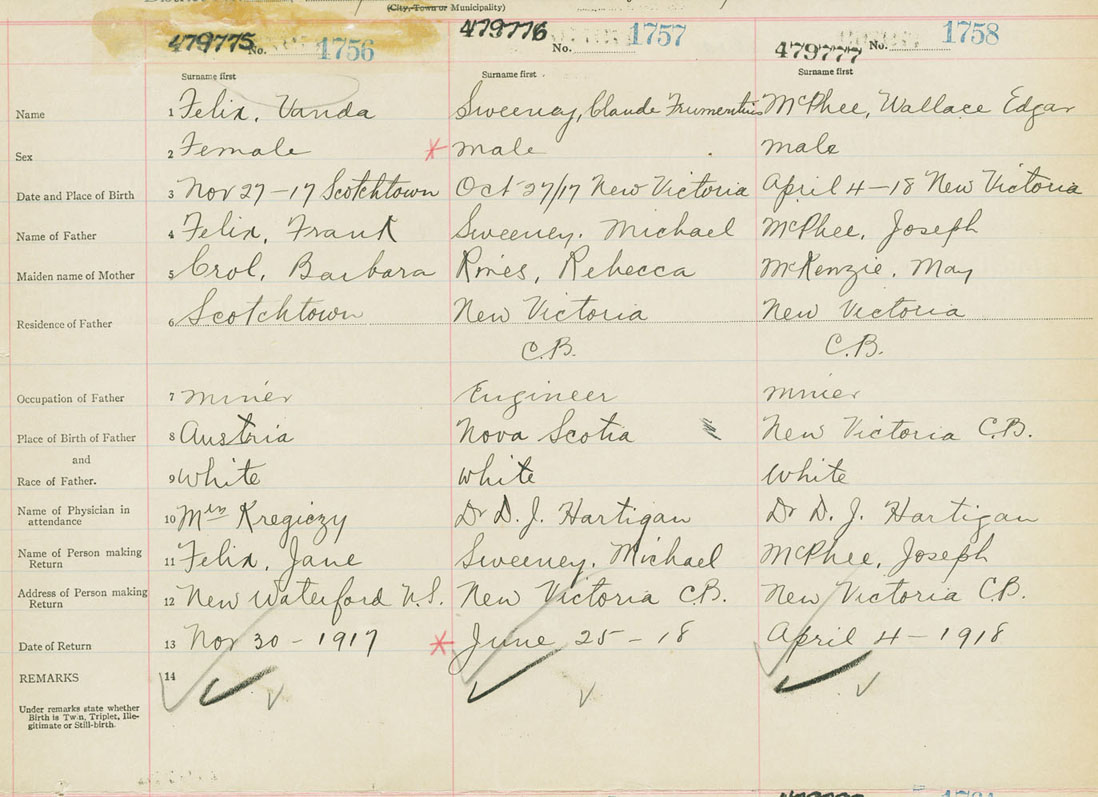 (City, Town or Municipality)
479775 No. 1756 479776 No. 1757 479777 No. 1758
Surname first Surname first Surname first
Name 1 Felix, Vanda Sweeney, Claude Frumentius McPhee, Wallace Edgar
Sex 2 Female male male
Date and Place of Birth 3 Nov 27-17 Scotchtown Oct 27/17 New Victoria April 4-18 New Victoria
Name of Father 4 Felix, Frank Sweeney. Michael McPhee, Joseph
Maiden name of Mother 5 Crol, Barbara Rines, Rebecca McKenzie, May
Residence of Father 6 Scotchtown New Victoria New Victoria
C.B. C.B.
Occupation of Father 7 minér Engineer minér
Place of Birth of Father 8 Austria Nova Scotia New Victoria C.B.
and
Race of Father. 9 White White White
Name of Physician in 10 Mrs Kregiczy Dr D. J. Hartigan Dr D. J. Hartigan
attendance
Name of Person making 11 Felix, Jane Sweeney, Michael McPhee, Joseph
Return
Address of Person making 12 New Waterford N.S. New Victoria C.B. New Victoria C.B.
Return
Date of Return 13 Nov 30 - 1917 June 25 - 18 April 4 - 1918
REMARKS 14
Under remarks state whether
Birth is Twin, Triplet, Ille-
gitimate or Still-birth.